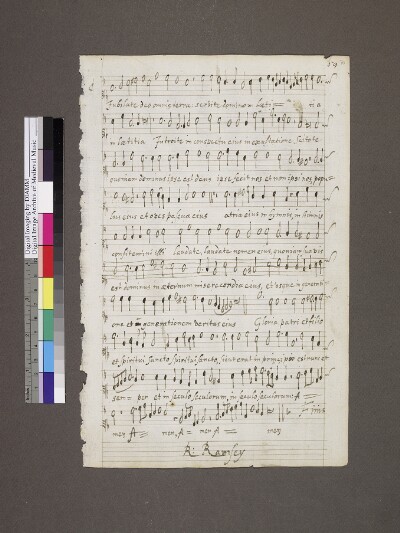 Jubilate deo omnis terra: servite domino in læti= tia
in lætitia Introite in conspectu eius in exultatione, Scitote
quoniam dominus ipse est deus ipse fecit nos et non ipsi nos, popu
lus eius et oves pascua eius atria eius in hymnis, in hymnis
confitemini illi laudate, laudate nomen eius, quoniam suavis
est dominus in æternum misericordia eius, et usque in generati
one et in generationem veritas eius Gloria patri et filio
et spiritui sancto, spiritui sancto, sicut erat in principio et nunc et
sem= per et in sæcula sæculorum, in sæcula sæculorum A=
men A= men A= men A= men
finis
R: Ramsey
Digital Imaging by DIAMM
Digital Image Archive of Medieval Music